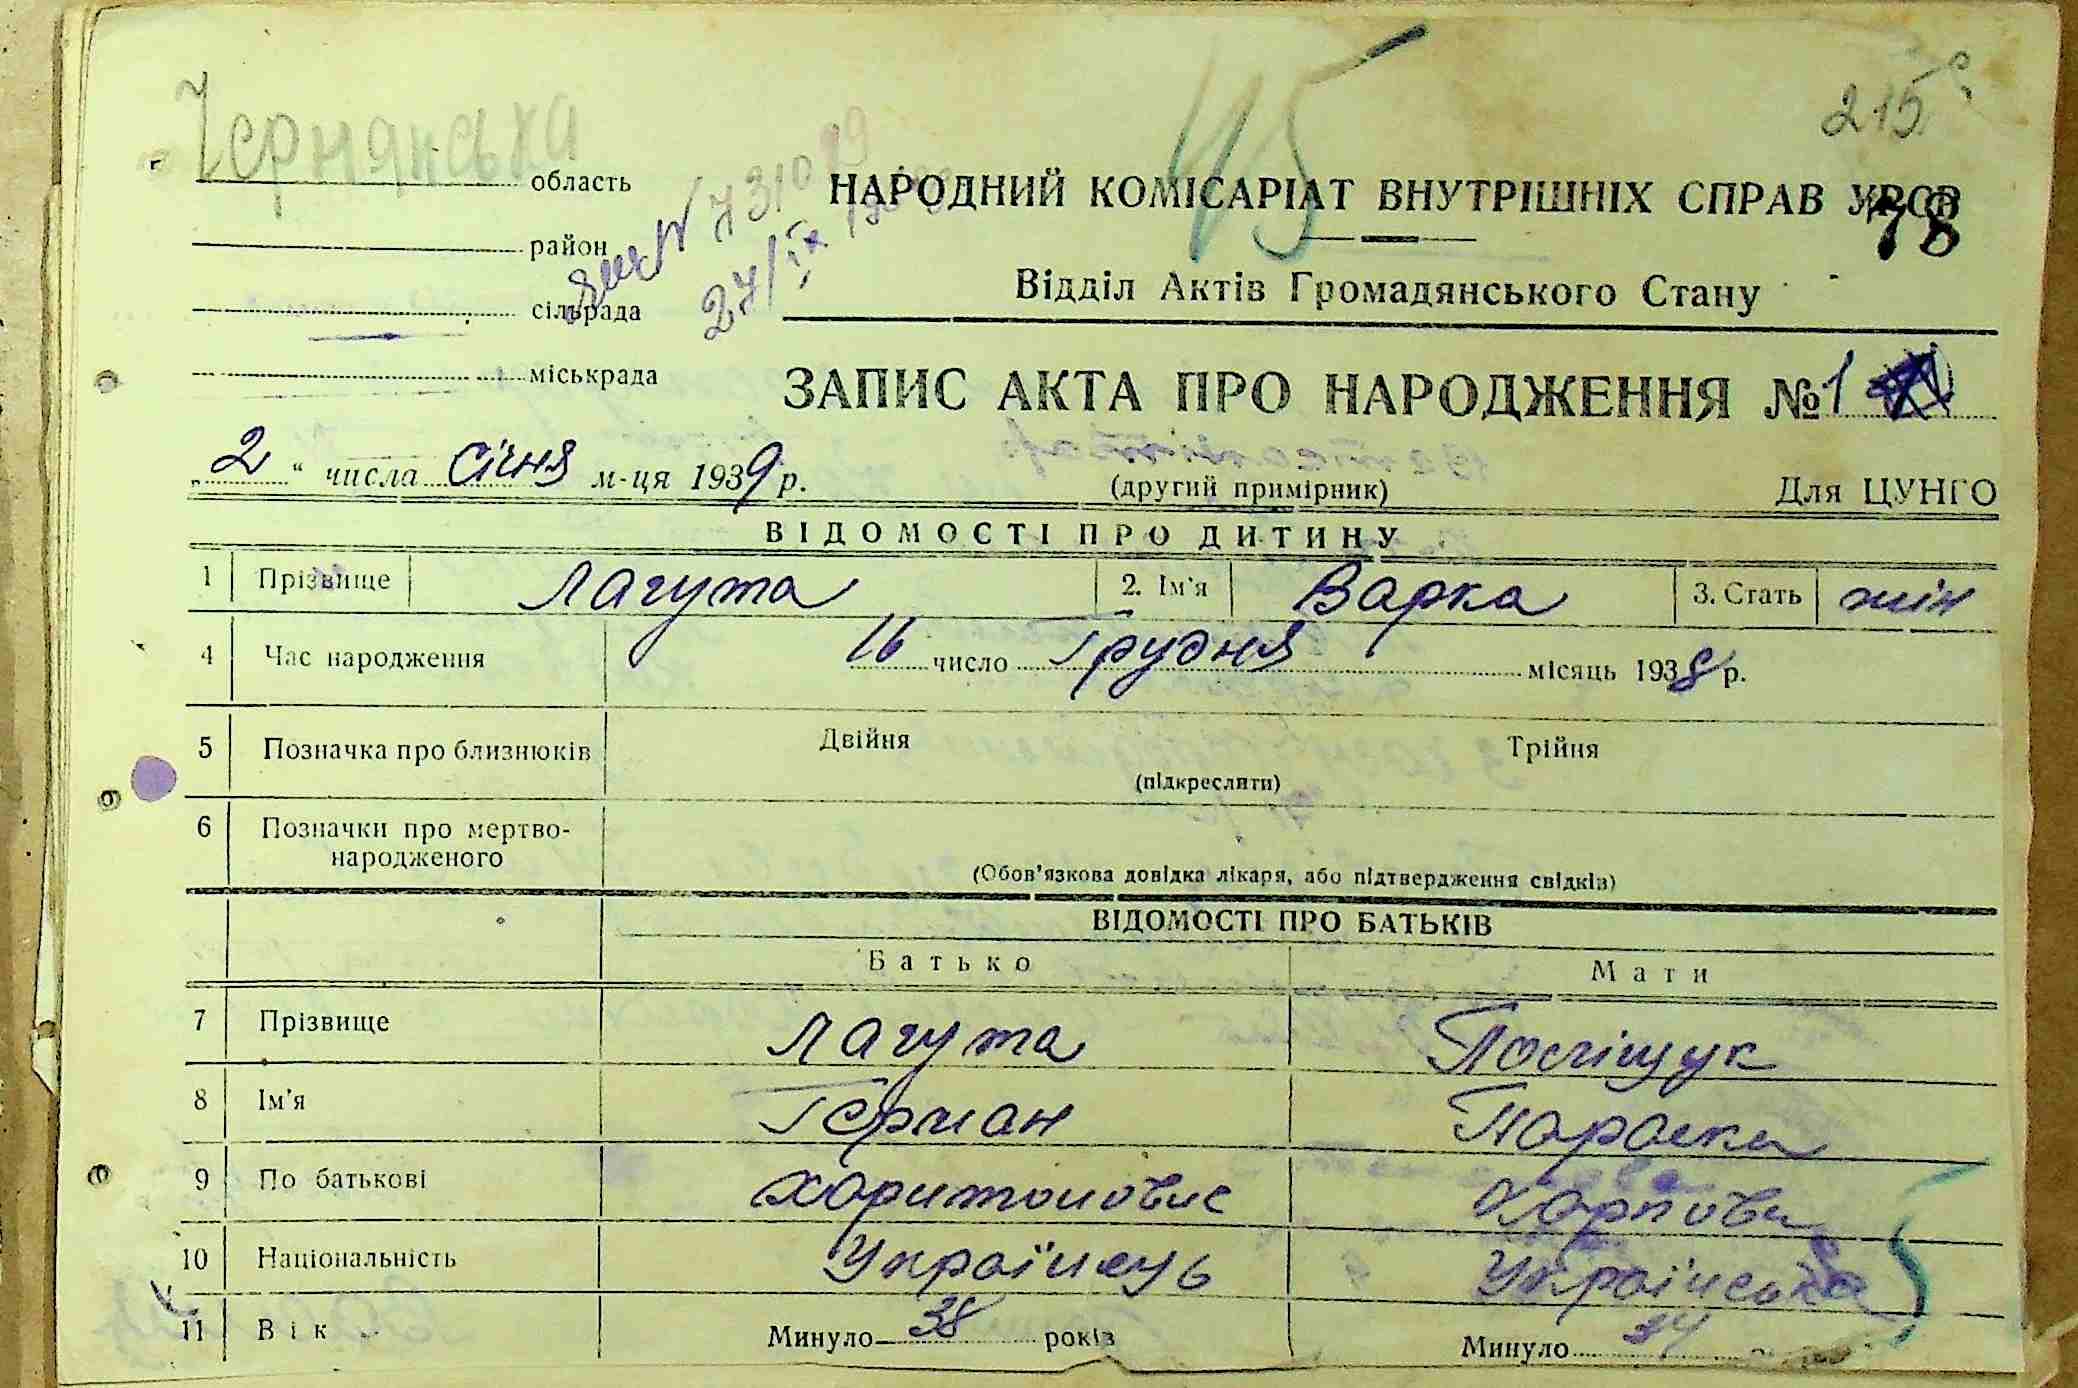 Чернянська область
215
45
район
НАРОДНИЙ КОМІСАРІАТ ВНУТРІШНІХ СПРАВ УРСР
78
27/IX
сільрада
Відділ Актів Громадянського Стану
міськрада
ЗАПИС АКТА ПРО НАРОДЖЕННЯ № 1
„2“ числа січня м-ця 1939 р.
(другий примірник)
Для ЦУНГО
ВІДОМОСТІ ПРО ДИТИНУ
1 Прізвище Лагута 2. Ім'я Варка 3. Стать жін
4 Час народження 16 число Грудня місяць 1938 р.
5 Позначка про близнюків Двійня Трійня
(підкреслити)
6 Позначки про мертво-
народженого
(Обов'язкова довідка лікаря, або підтвердження свідків)
ВІДОМОСТІ ПРО БАТЬКІВ
Батько Мати
7 Прізвище Лагута Поліщук
8 Ім'я Герман Параска
9 По батькові Харитонович Карповн
10 Національність Українець Українська
11 Вік Минуло 38 років Минуло 34